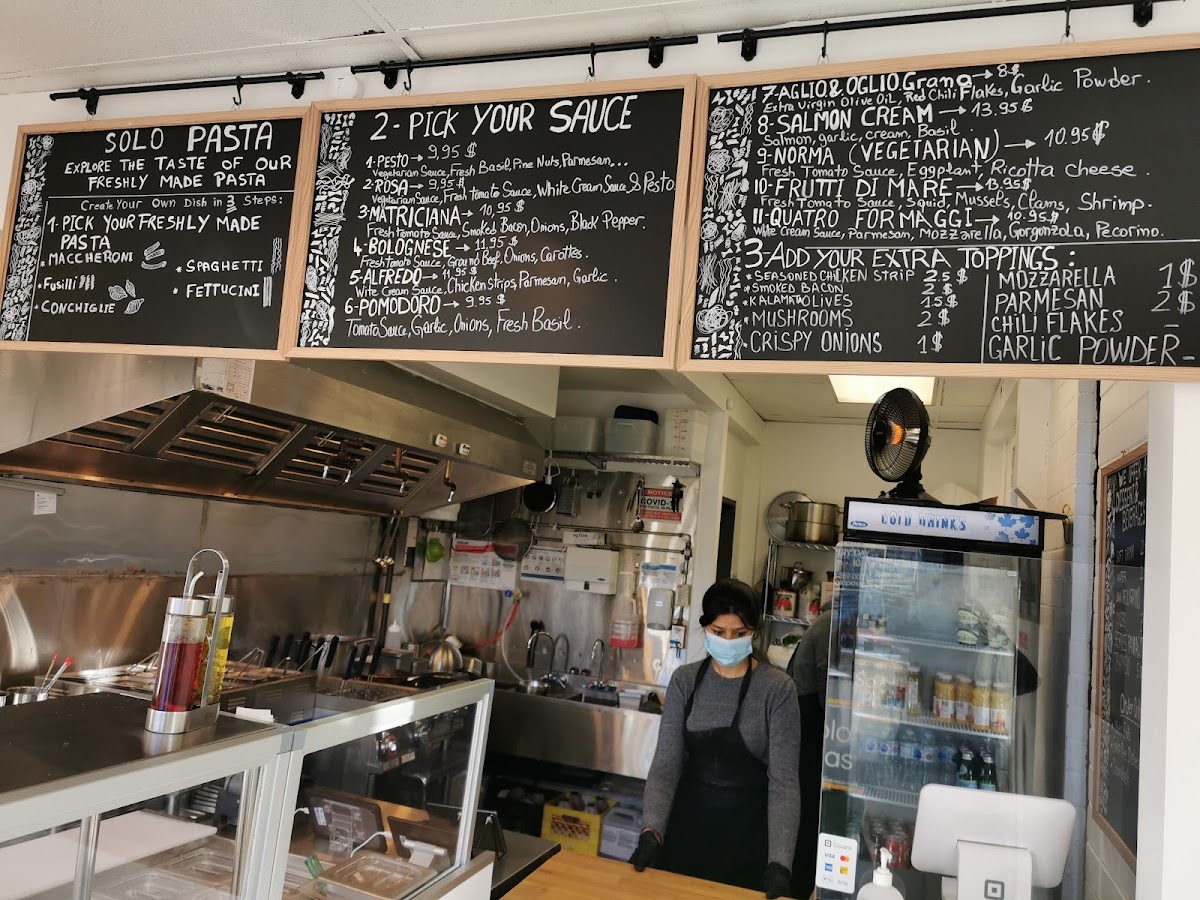 SOLO PASTA
EXPLORE THE TASTE OF OUR
FRESHLY MADE PASTA
Create Your Own Dish in 3 Steps:
1-PICK YOUR FRESHLY MADE
PASTA
*MACCHERONI
*Fusilli
*CONCHIGLIE
*SPAGHETTI
*FETTUCINI
2-PICK YOUR SAUCE
1-PESTO→ 9,95 $
Vegetarian Sauce, Fresh Basil, Pine Nuts, Parmesan...
2-ROSA→ 9,95 $
Vegetarian Sauce, Fresh Tomato Sauce, White Cream Sauce & Pesto
3-MATRICIANA→ 10,95 $
Fresh tomato Sauce, Smoked Bacon, Onions, Black Pepper.
4-BOLOGNESE→ 11,95 $
Fresh tomato Sauce, Ground Beef, Onions, Carottes.
5-ALFREDO→ 11,95 $
Wite Cream Sauce, Chicken strips, Parmesan, Garlic.
6-POMODORO→ 9.95 $
Tomato Sauce, Garlic, Onions, Fresh Basil.
7-AGLIO & OGLIO Grana→ 8$
Extra Virgin Olive Oil, Red Chili Flakes, Garlic Powder.
8-SALMON CREAM→ 13.95$
Salmon, garlic, cream, Basil.
9-NORMA (VEGETARIAN)→ 10.95$
Fresh Tomato Sauce, Eggplant, Ricotta cheese.
10-FRUTTI DI MARE→ 13.95$
Fresh Tomato Sauce, Squid, Mussels, Clams, Shrimp.
11-QUATRO FORMAGGI→ 10.95$
White Cream Sauce, Parmesan, Mozzarella, Gorgonzola, Pecorino.
3-ADD YOUR EXTRA TOPPINGS:
*SEASONED CHICKEN STRIP 2.5$
*SMOKED BACON 2$
*KALAMATA OLIVES 1.5$
*MUSHROOMS 2$
*CRISPY ONIONS 1$
MOZZARELLA 1$
PARMESAN 2$
CHILI FLAKES -
GARLIC POWDER-
NOTICE
COVID-
COLD DRINKS
Square
VISA